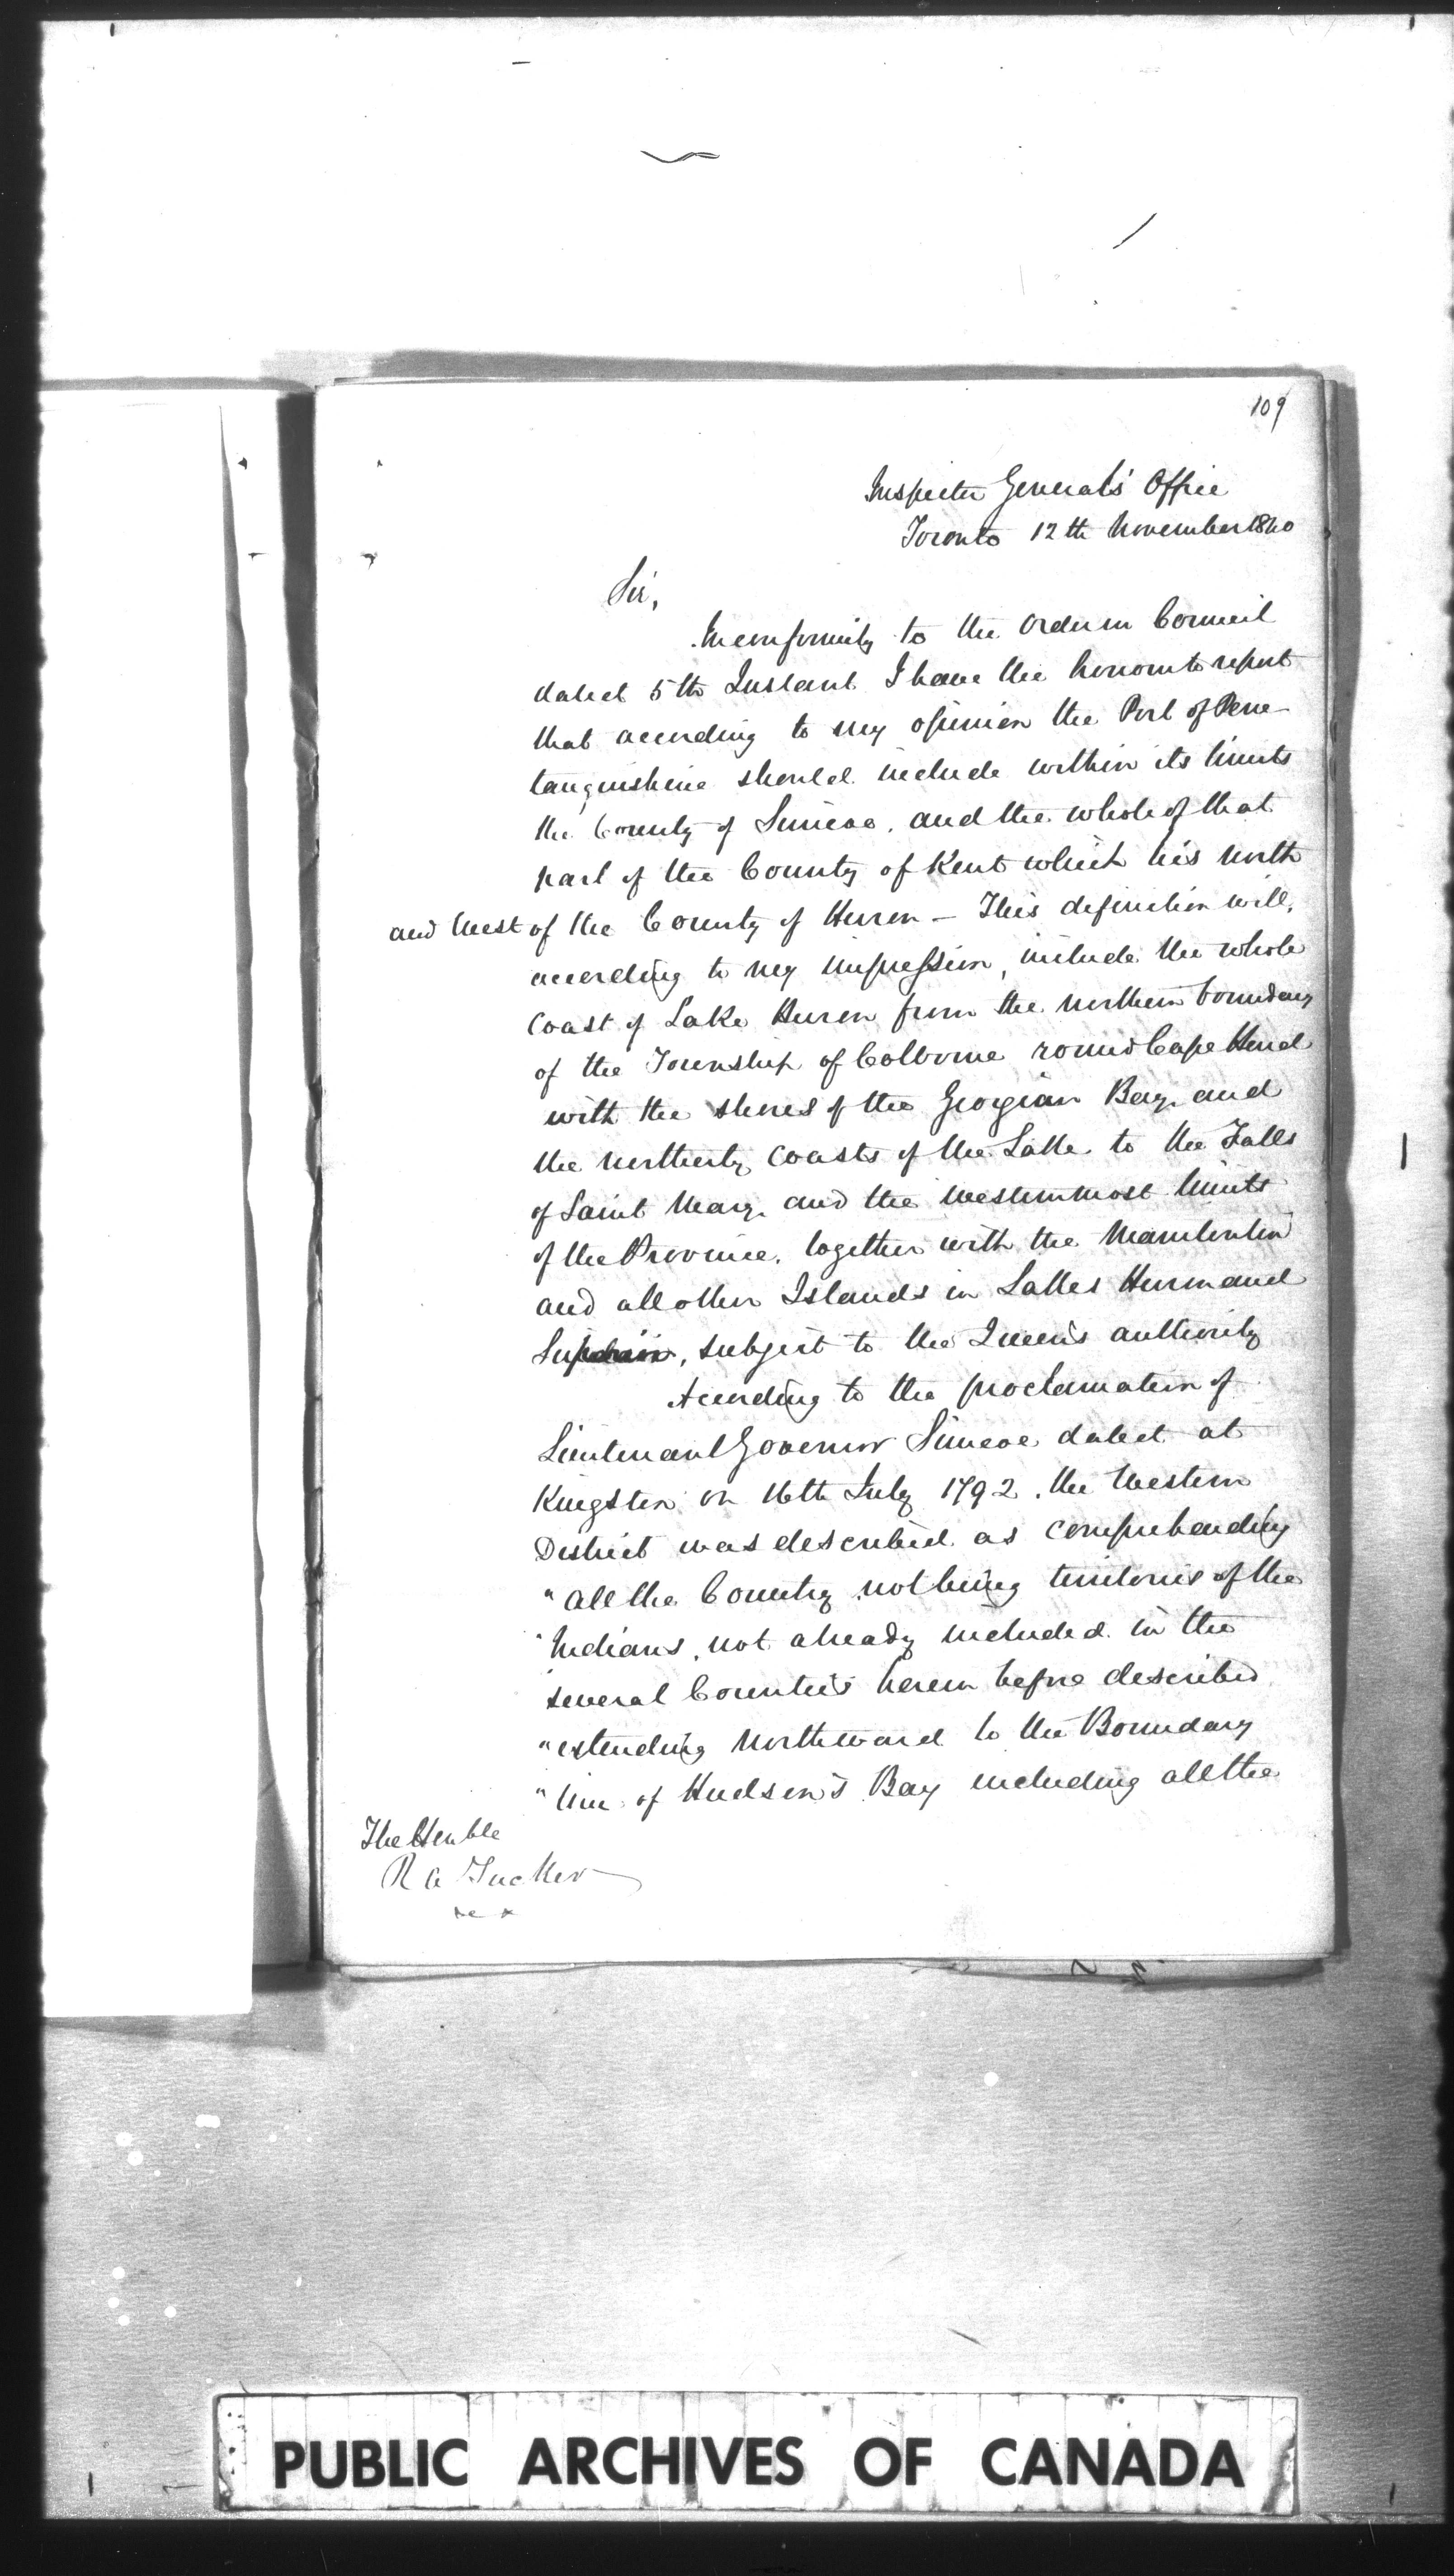 109
Inspector General's Office
Toronto 12th November 1840
Sir,
In conformity to the Order in Council
dated 5th Instant I have the honour to report
that according to my opinion the Port of Pene-
tanguishine should include within its limits
the County of Simcoe, and the whole of that
part of the County of Kent which lies North
and West of the County of Huron – This definition will,
according to my impression, include the whole
Coast of Lake Huron from the northern boundary
of the Township of Colborne round Cape Hurd
with the shores of the Georgian Bay and
the northerly coasts of the Lake to the Falls
of Saint Mary and the Westernmost limits
of the Province, together with the Manitoulin
and all other Islands in Lakes Huron and
Superior, subject to the Queen's authority
According to the proclamation of
Lieutenant Governor Simcoe dated at
Kingston on 16th July 1792, the Western
District was described as comprehending
"all the Country not being territories of the
"Indians, not already included in the
several Counties herein before described
"extending Northward to the Boundary
"line of Hudson's Bay including all the
The Honble
R A Tucker
PUBLIC ARCHIVES OF CANADA